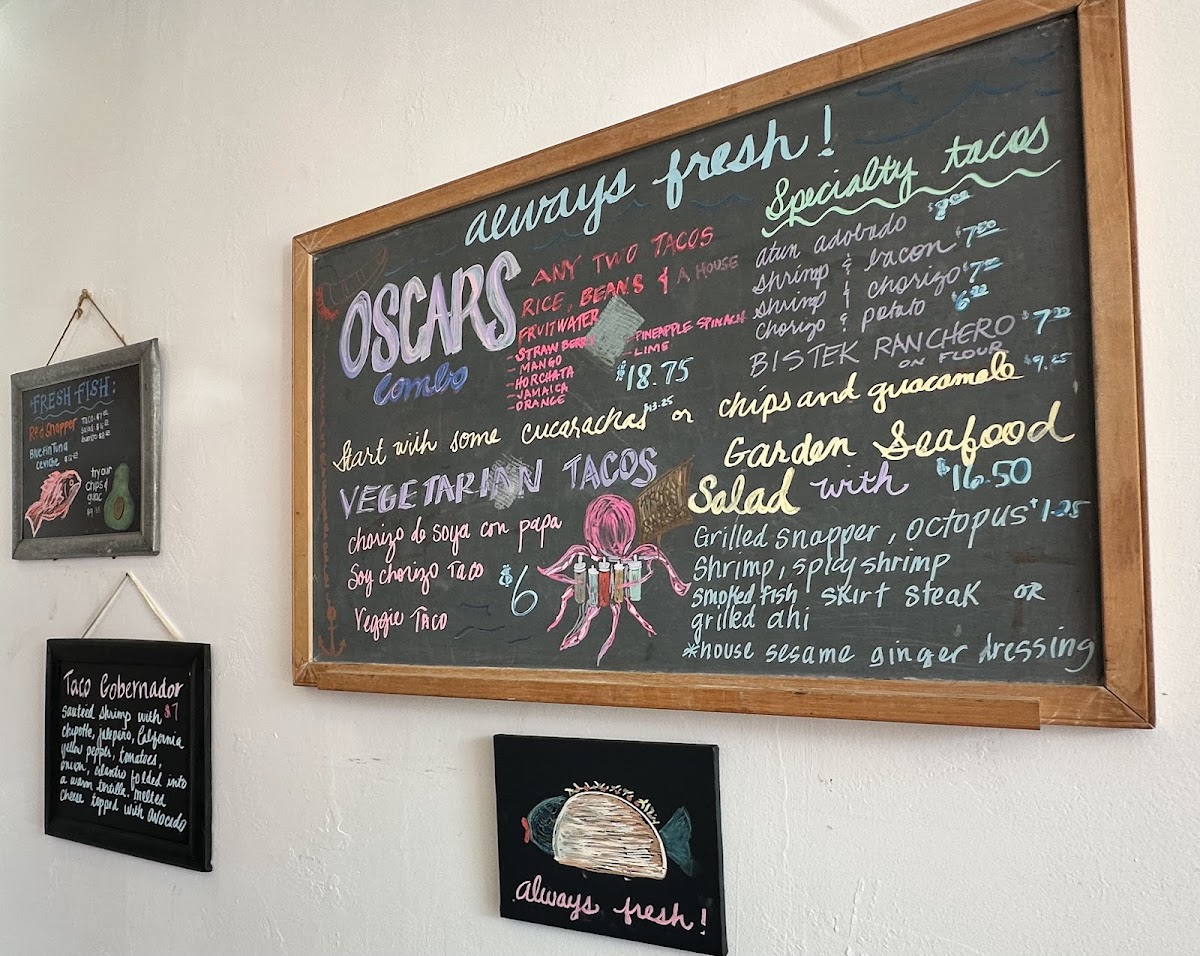 always fresh!
OSCARS
Combo
ANY TWO TACOS
RICE, BEANS & A HOUSE
FRUITWATER
- STRAWBERRY
- MANGO
- HORCHATA
- JAMAICA
- ORANGE
- PINEAPPLE SPINACH
- LIME
$18.75
Specialty tacos
atun adobado $8.00
shrimp & bacon $7.50
shrimp & chorizo $7.
chorizo & potato $6.
BISTEK RANCHERO $7.
ON FLOUR
Start with some cucarachas $13.25 or chips and guacamole $9.25
VEGETARIAN TACOS
chorizo de soya con papa
Soy chorizo Taco
Veggie Taco
$6
Garden Seafood
Salad with $16.50
Grilled snapper, octopus +1.25
Shrimp, spicy shrimp
smoked fish skirt steak OR
grilled ahi
*house sesame ginger dressing
FRESH FISH:
Red Snapper
Taco:
Salad:
burrito:
Bluefin Tuna
ceviche
try our
chips &
guac
Taco Gobernador
sautéed shrimp with $7
chipotle, jalapeño, California
yellow pepper, tomatoes,
onion, cilantro folded into
a warm tortilla.. melted
cheese topped with avocado
always fresh!